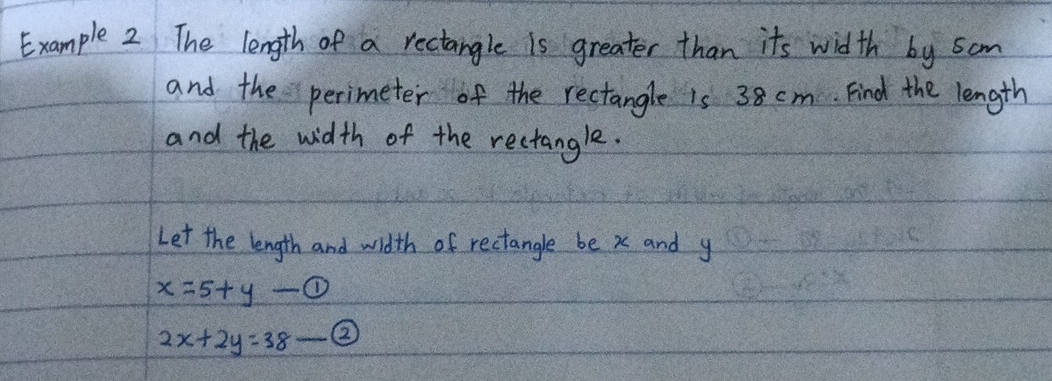 Example 2 The length of a rectangle is greater than its width by 5cm
and the perimeter of the rectangle is 38 cm. Find the length
and the width of the rectangle.
Let the length and width of rectangle be x and y
x=5+y —①
2x+2y=38—②